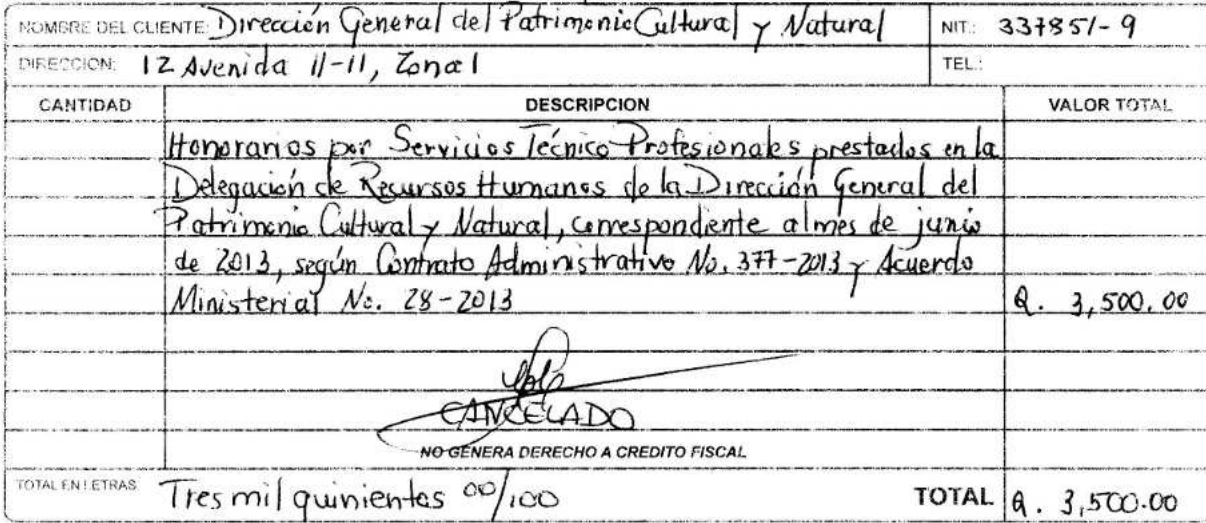 NOMBRE DEL CLIENTE: Dirección General del Patrimonio Cultural y Natural NIT.: 337851-9
DIRECCION: 12 Avenida 11-11, Zona 1 TEL.:
CANTIDAD DESCRIPCION VALOR TOTAL
Honorarios por Servicios Técnico Profesionales prestados en la
Delegación de Recursos Humanos de la Dirección General del
Patrimonio Cultural y Natural, correspondiente al mes de junio
de 2013, según Contrato Administrativo No. 377-2013 y Acuerdo
Ministerial No. 28-2013 Q. 3,500.00
CANCELADO
NO GENERA DERECHO A CREDITO FISCAL
TOTAL EN LETRAS Tres mil quinientos 00/100 TOTAL Q. 3,500.00